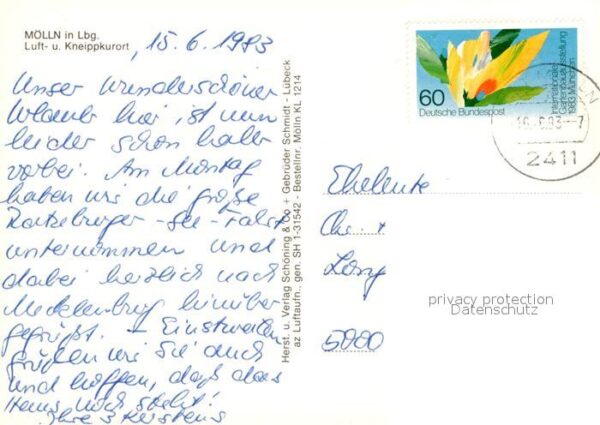 MÖLLN in Lbg.
Luft- u. Kneippkurort
, 15.6.1983
Unser wunderschöner
Urlaub hier, ist nun
leider schon halb
vorbei. Am Montag
haben wir die große
Ratzeburger-See-Fahrt
unternommen und
dabei herzlich nach
Mecklenburg hinüber
gegrüßt. – Einstweilen
grüßen wir Sie auch
und hoffen, daß das
Haus noch steht!
Ihre 3 Kerstens
Herst. u. Verlag Schöning & Co + Gebrüder Schmidt - Lübeck
az Luftaufn., gen. SH 1-31542 - Bestellnr. Mölln KL 1214
60
Deutsche Bundespost
Internationale
Gartenbauausstellung
1983 München
16.6.83-7
2411
Eheleute
5000
privacy protection
Datenschutz